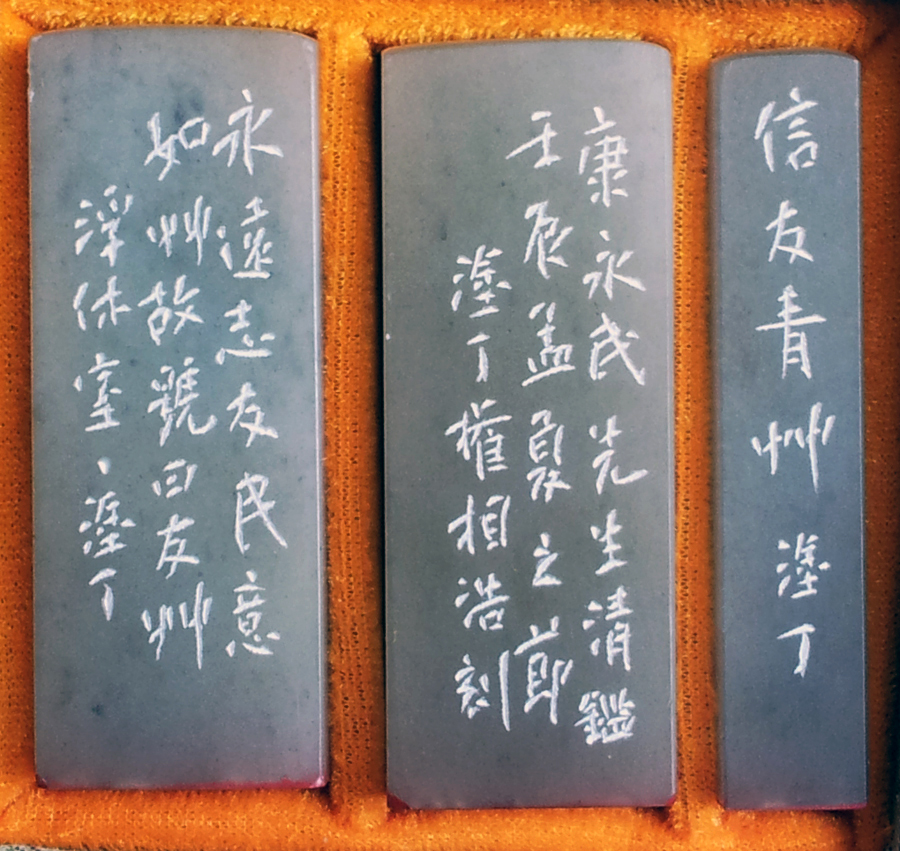 信友青艸 塗丁
康永民先生清鑑
壬辰孟夏之節
塗丁權相浩刻
永遠志友民意
如艸故號曰友艸
浮休室、塗丁